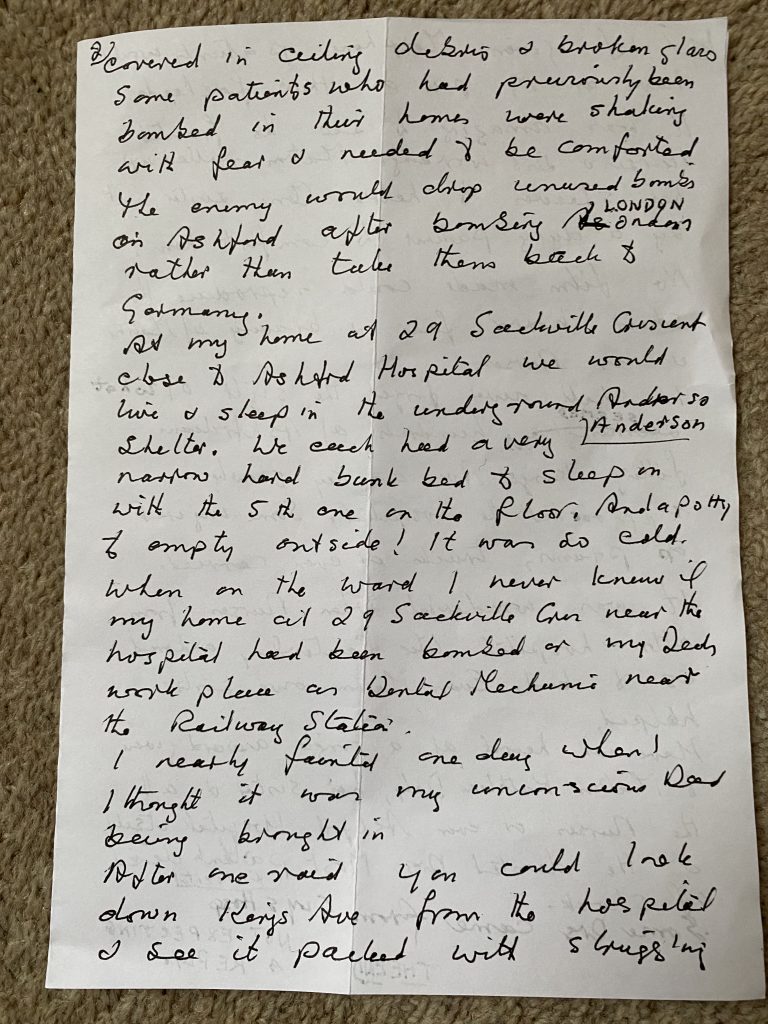 2) covered in ceiling debris & broken glass
Some patients who had previously been
bombed in their homes were shaking
with fear & needed to be comforted
The enemy would drop unused bombs
on Ashford after bombing London LONDON
rather than take them back to
Germany.
At my home at 29 Sackville Crescent
close to Ashford Hospital we would
live & sleep in the underground Anderso
Shelter. We each had a very Anderson
narrow hard bunk bed to sleep on
with the 5th one on the floor. And a potty
to empty outside! It was so cold.
When on the ward I never knew if
my home at 29 Sackville Cres near the
hospital had been bombed or my Dads
work place as Dental Mechanic near
the Railway Station.
I nearly fainted one day when I
I thought it was my unconscious Dad
being brought in
After one raid you could look
down Kings Ave from the hospital
& see it packed with